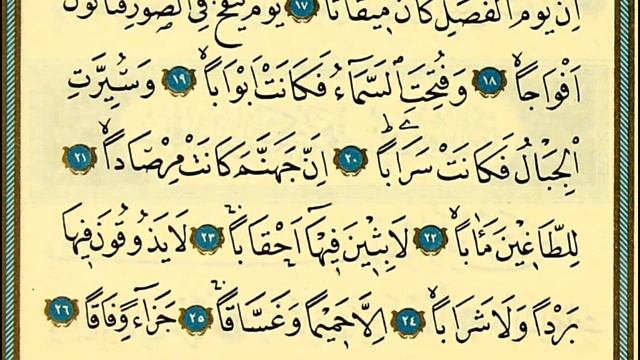 اِنَّ يَوْمَ الْفَصْلِ كَانَ مِيقَاتاً ﴿١٧﴾ يَوْمَ يُنْفَخُ فِي الصُّورِ فَتَأْتُونَ
اَفْوَاجاً ﴿١٨﴾ وَفُتِحَتِ السَّمَٓاءُ فَكَانَتْ اَبْوَاباً ﴿١٩﴾ وَسُيِّرَتِ
الْجِبَالُ فَكَانَتْ سَرَاباً ﴿٢٠﴾ اِنَّ جَهَنَّمَ كَانَتْ مِرْصَاداً ﴿٢١﴾
لِلطَّاغ۪ينَ مَاٰباً ﴿٢٢﴾ لَابِث۪ينَ ف۪يهَٓا اَحْقَاباً ﴿٢٣﴾ لَا يَذُوقُونَ ف۪يهَا
بَرْداً وَلَا شَرَاباً ﴿٢٤﴾ اِلَّا حَم۪يماً وَغَسَّاقاً ﴿٢٥﴾ جَزَٓاءً وِفَاقاً ﴿٢٦﴾